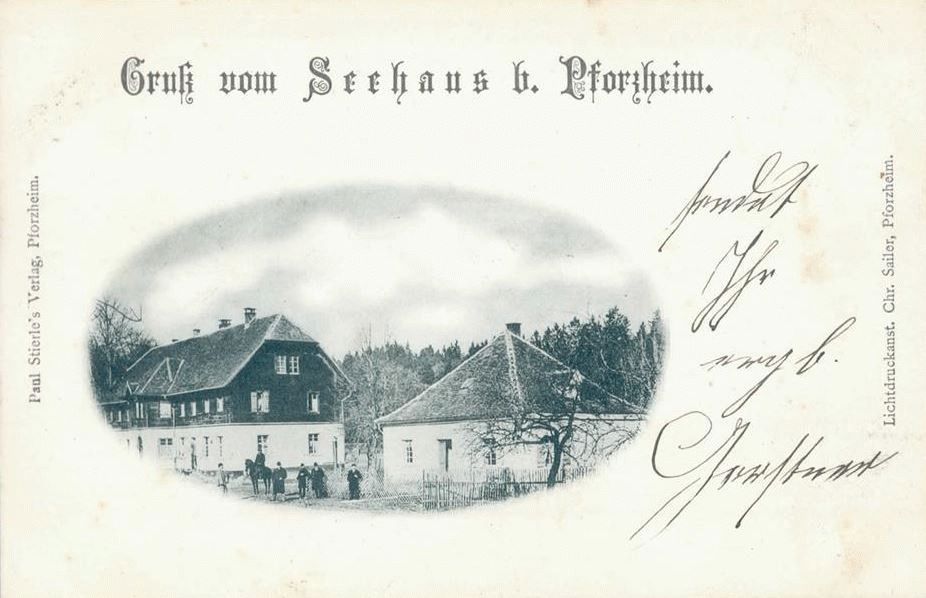 Gruß vom Seehaus b. Pforzheim.
Paul Stierle's Verlag, Pforzheim.
sendet
Ihr
erg b.
Gerstner
Lichtdruckanst. Chr. Sailer, Pforzheim.